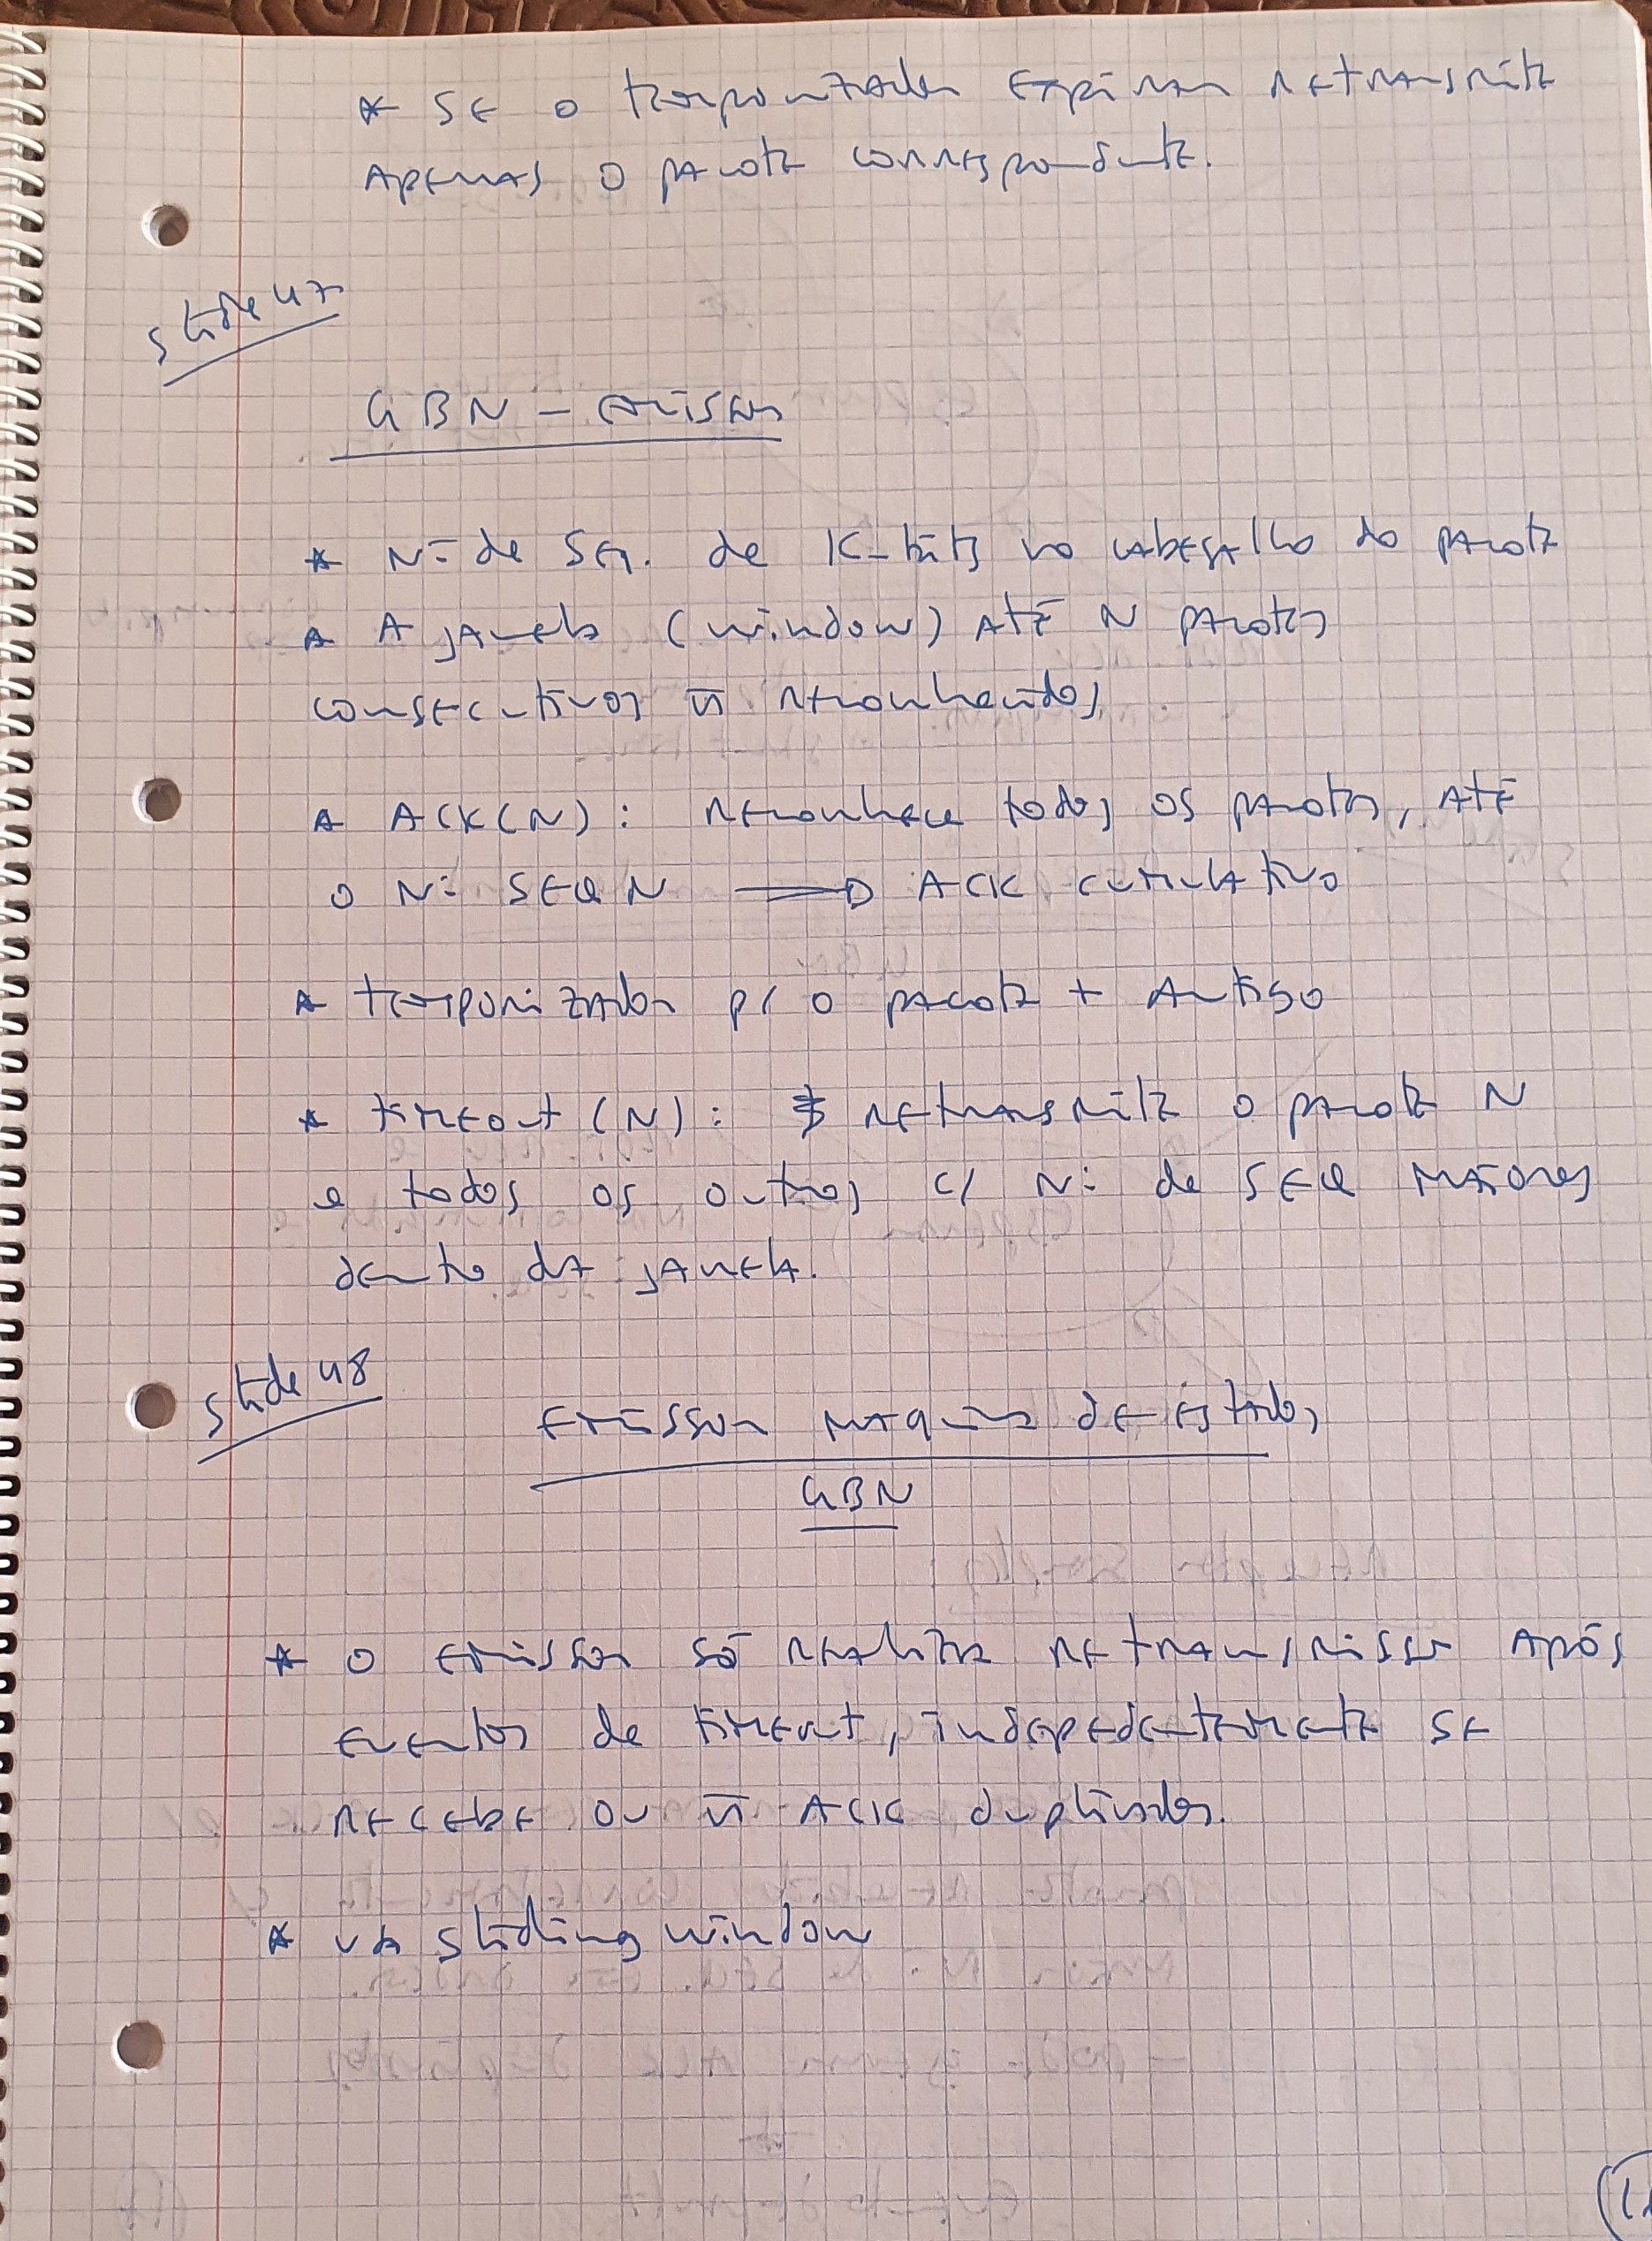 * SE O temporizador Expirar retransmite
Apenas o pacote correspondente.
slide 47
GBN - Emissor
* Nº de SEQ. de K-bits no cabeçalho do pacote
* A janela (window) Até N pacotes
consecutivos ñ reconhecidos
* ACK(N): reconhece todos os pacotes, Até
o Nº SEQ N ⇒ ACK cumulativo
* temporizador p/ o pacote + Antigo
* timeout (N): retransmite o pacote N
e todos os outros c/ Nº de SEQ MAiores
dentro da janela.
slide 48
Emissor MAquina de Estados
GBN
* O Emissor só realiza retransmissão Após
Eventos de timeout, indepedentemente SE
recebe ou ñ ACK duplicados.
* via sliding window